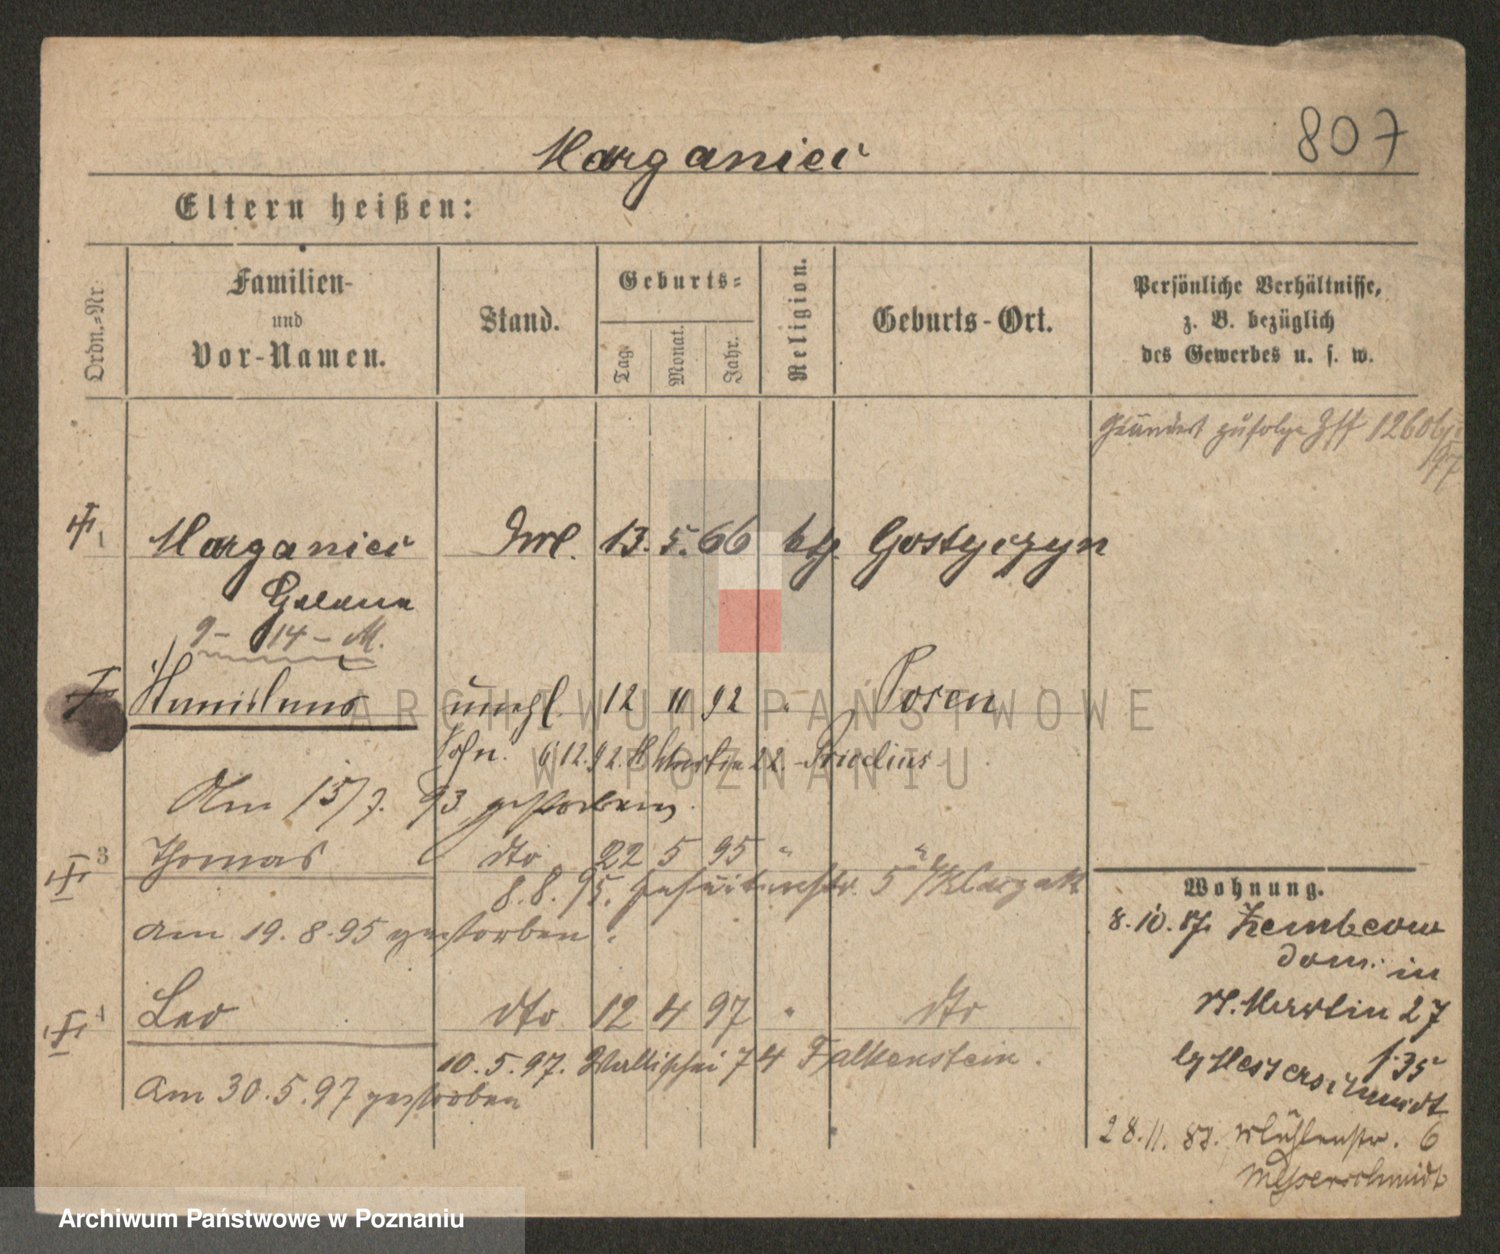 807
Marganiec
Eltern heißen:
Ordn.-Nr.
Familien-
und
Vor-Namen.
Stand.
Geburts-
Tag.
Monat.
Jahr.
Religion.
Geburts-Ort.
Persönliche Verhältnisse,
z. B. bezüglich
des Gewerbes u. s. w.
Geändert zufolge 1260
97
1 Marganiec 13. 5. 66 ktl. Gostyczyn
9 - 14 - M.
unehl. 12 11 92 " Posen
Sohn. 6.12.92. St Martin 22.
Am 15/7. 93 gestorben.
3 Thomas dto 22 5 95 " "
8.8.95. Jesuitenstr. 5
am 19.8.95 gestorben.
4 Leo dto 12 4 97 " dto
10.5.97. Wallischei 74 Falkenstein.
am 30.5.97 gestorben
Wohnung.
8.10.87. Zembcow
dom. in
St. Martin 27
b/ Messerschmidt
28.11.87. Mühlenstr. 6
Messerschmidt
ARCHIWUM PAŃSTWOWE
W POZNANIU
Archiwum Państwowe w Poznaniu